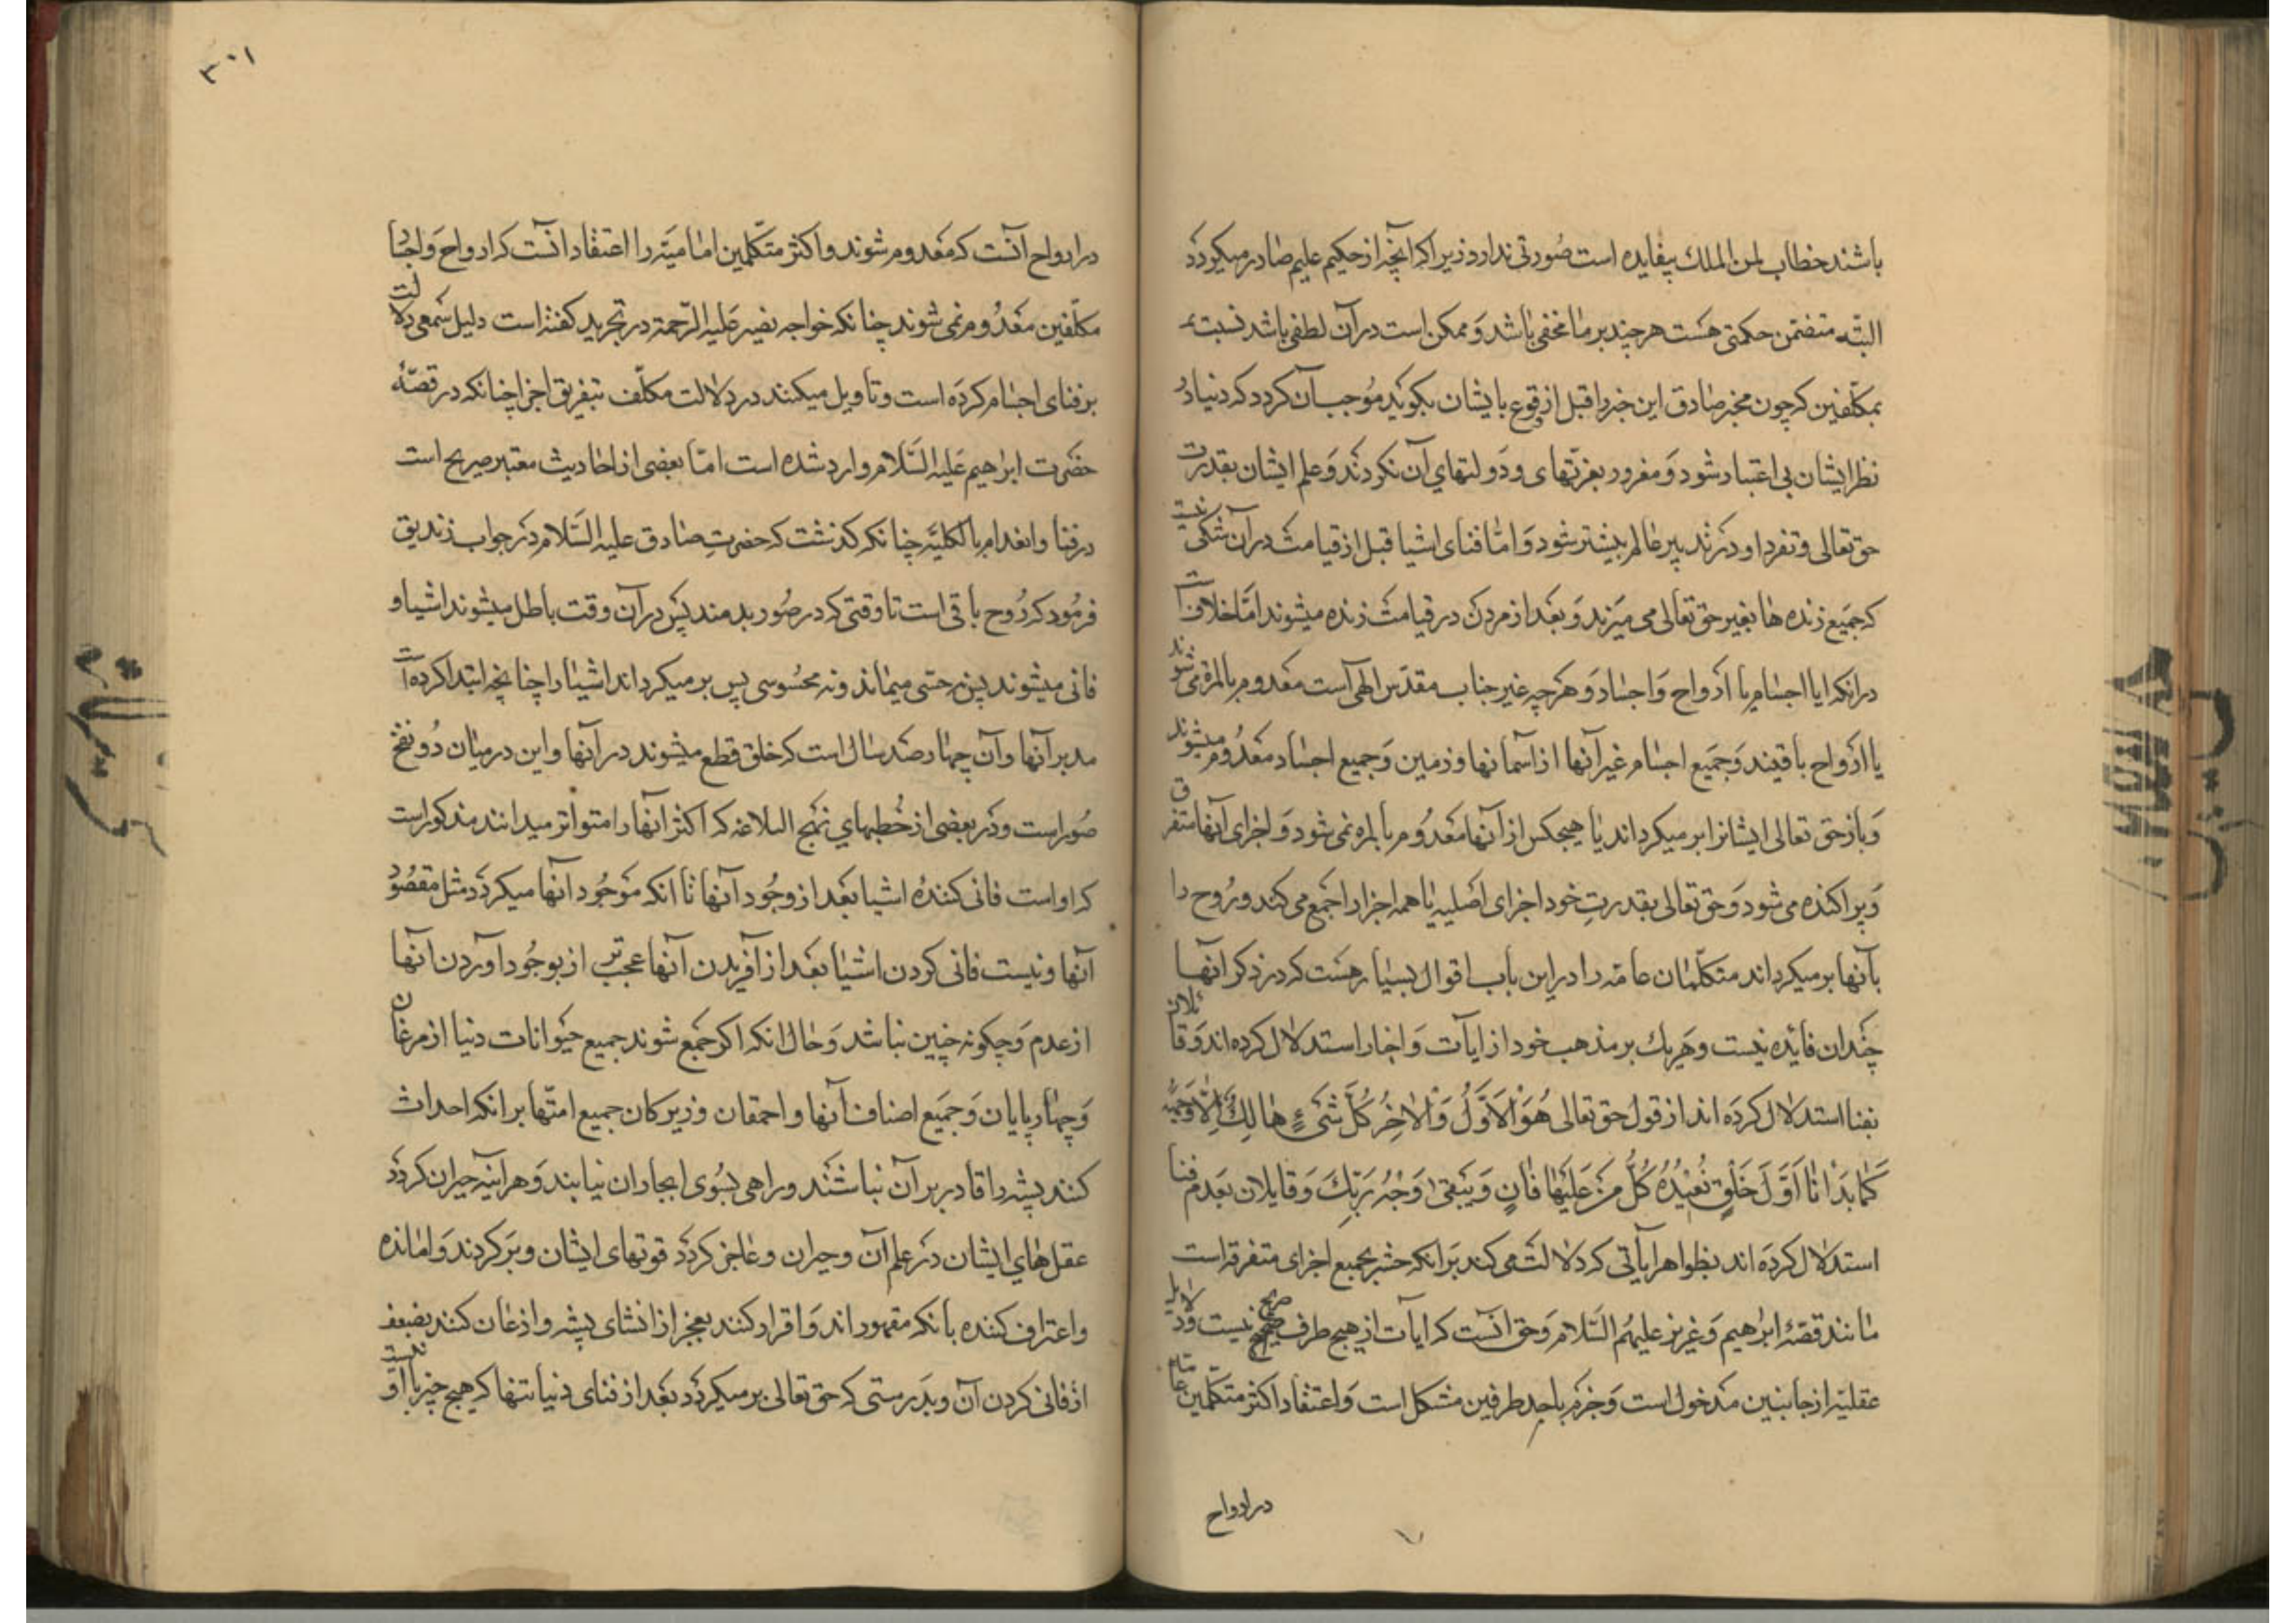 باشند خطاب لمن الملك بيفايده است صورتی ندارد زیرا که آنچه از حکیم علیم صادر میگردد
البته متضمن حکمتی هست هر چند بر ما مخفی باشد و ممکن است در آن لطفی باشد نسبت
بمکلفین که چون مخبر صادق این خبر را قبل از وقوع بایشان بگوید موجب آن گردد که دنیا در
نظر ایشان بی اعتبار شود و مغرور بعزتهای و دولتهای آن نگردند و علم ایشان بقدرت
حق تعالی و تفرد او در تدبیر عالم بیشتر شود و امّا فنای اشیا قبل از قیامت در آن شکی نیست
که جمیع زنده ها بغیر حق تعالی می میرند و بعد از مردن در قیامت زنده میشوند امّا خلاف است
در انکه ایا اجسام با ارواح و اجساد و هر چه غیر جناب مقدس الهی است معدوم بالمرة می شوند
یا ارواح باقیند و جمیع اجسام غیر آنها از آسمانها و زمین و جمیع اجساد معدوم میشوند
و باز حق تعالی ایشانرا بر میگرداند یا هیچکس از آنها معدوم بالمره نمی شود و اجزای آنها متفرق
و پراکنده می شود و حق تعالی بقدرت خود اجزای اصلیه یا همه اجزا را جمع می کند و روح را
بآنها بر میگرداند متکلمان عامّه را در این باب اقوال بسیار هست که در ذکر آنها
چندان فائده نیست و هر یك بر مذهب خود از ایات و اخبار استدلال کرده اند و قائلان
بفنا استدلال کرده اند از قول حق تعالی هُوَ الْاَوَّلُ وَ الْاٰخِرُ كُلُّ شَیْءٍ هٰالِكٌ اِلّٰا وَجْهَهُ
كَمٰا بَدَاْنٰا اَوَّلَ خَلْقٍ نُعیْدُهُ كُلُّ مَنْ عَلَیْهٰا فٰانٍ وَ یَبْقیٰ وَجْهُ رَبِّكَ وَ قایلان بعدم فنا
استدلال کرده اند بظواهر آیاتی که دلالت می کند بر انکه حشر بجمیع اجزای متفرقه است
مانند قصّۀ ابراهیم و عزیر علیهم السّلام و حق آنست که ایات از هیچ طرف صریح نیست و دلایل
عقلیّه از جانبین مدخول است و جزم باحد طرفین مشکل است و اعتقاد اکثر متکلمین عامّه
در ارواح
۳۰۱
در ارواح آنست که معدوم شوند و اکثر متکلمین امامیّه را اعتقاد آنست که ارواح و اجساد
مکلّفین معدوم نمی شوند چنانکه خواجه نصیر علیه الرّحمة در تجرید گفته است دلیل سمعی دلالت
بر فنای اجسام کرده است و تأویل میکنند در دلالت مکلّف بتفریق اجزا چنانکه در قصّۀ
حضرت ابراهیم علیه السّلام وارد شده است امّا بعضی از احادیث معتبر صریح است
در فنا و انعدام بالکلیّه چنانکه گذشت که حضرت صادق علیه السّلام در جواب زندیق
فرمود که روح باقی است تا وقتی که در صور بدمند پس در آن وقت باطل میشوند اشیا و
فانی میشوند پس نه حسّی میماند و نه محسوسی پس بر میگرداند اشیا را چنانچه ابتدا کرده است
مدبر آنها و آن چهار صد سال است که خلق قطع میشوند در آنها و این در میان دو نفخ
صور است و در بعضی از خطبهای نهج البلاغه که اکثر آنها را متواتر میدانند مذکور است
که او است فانی کنندۀ اشیا بعد از وجود آنها تا انکه موجود آنها میگردد مثل مفقود
آنها و نیست فانی کردن اشیا بعد از آفریدن آنها عجب تر از بوجود آوردن آنها
از عدم و چگونه چنین نباشد و حال انکه اگر جمع شوند جمیع حیوانات دنیا از مرغان
و چهارپایان و جمیع اصناف آنها و احمقان و زیرکان جمیع امتّها بر انکه احداث
کنند پشه را قادر بر آن نباشند و راهی بسوی ایجاد ان نیابند و هر اینه حیران گردد
عقل های ایشان در علم آن و حیران و عاجز گردد قوتهای ایشان و برگردند وامانده
و اعتراف کننده بانکه مقهور اند و اقرار کنند بعجز از انشای پشه و اذعان کنند بضعف
از فانی کردن آن و بدرستی که حق تعالی بر میگردد بعد از فنای دنیا تنها که هیچ چیز با او نیست